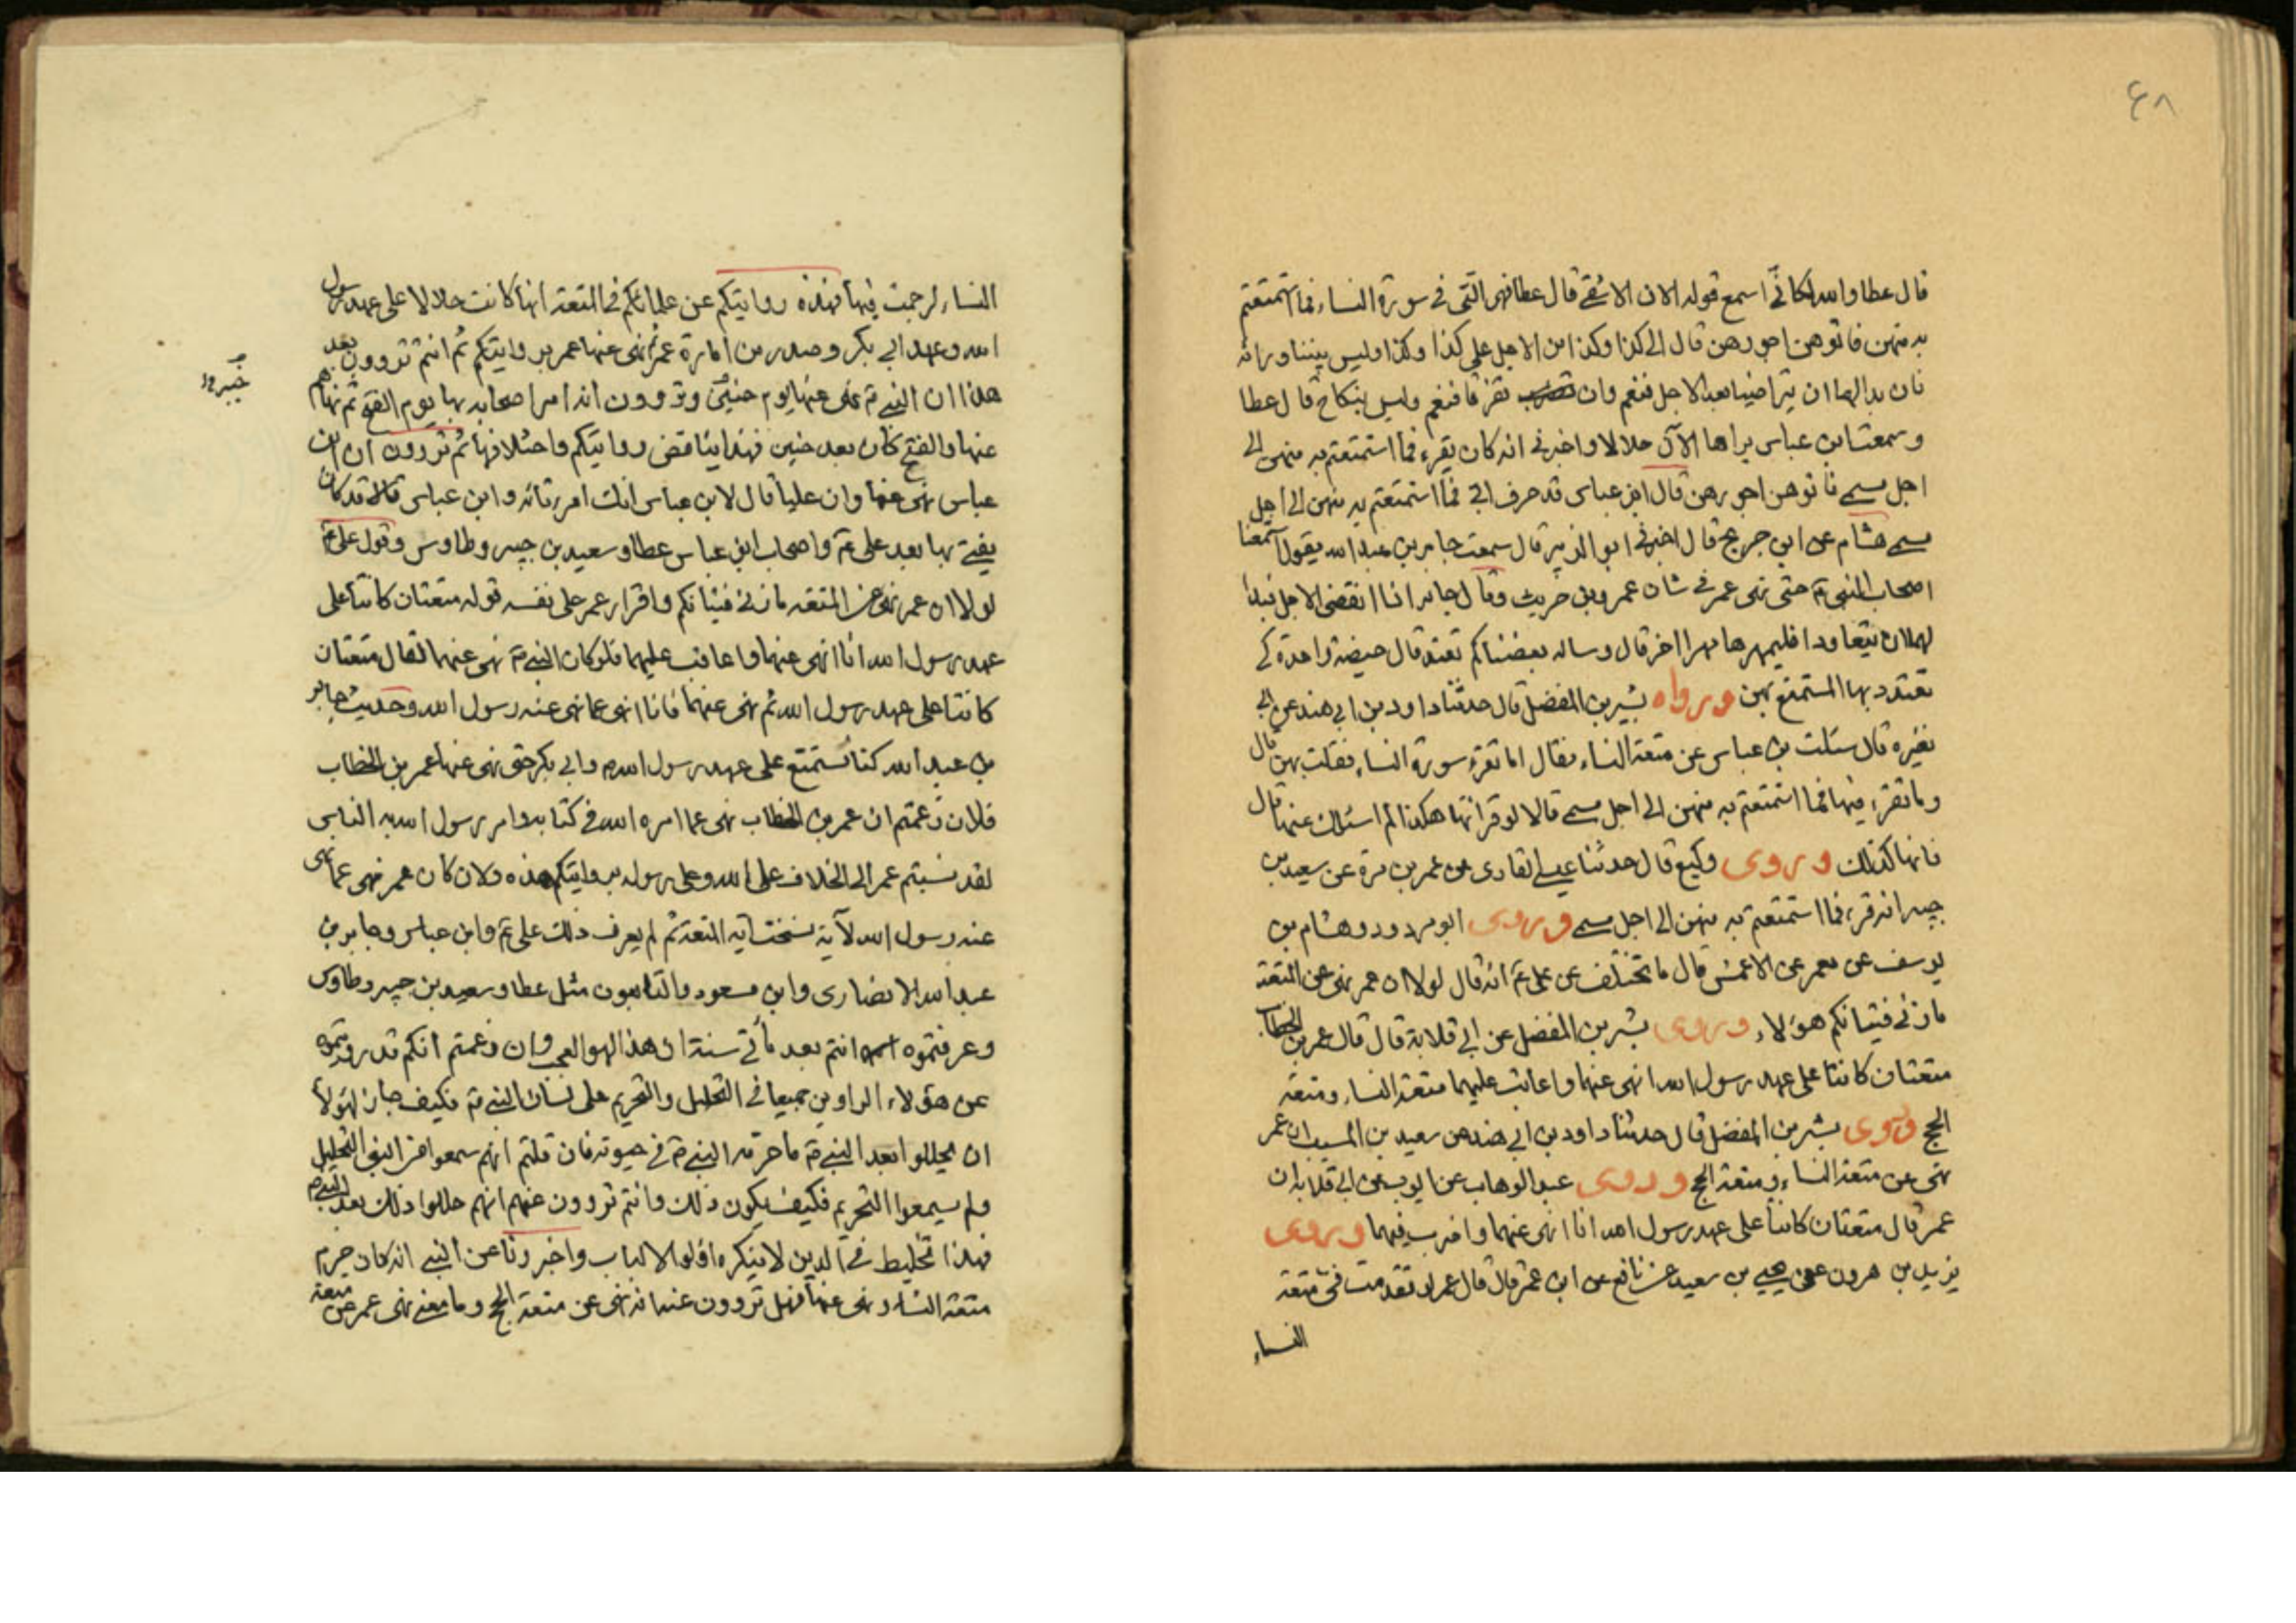 ٤٨
قال عطا والله لكأنّي اسمع قوله الان الا شقي قال عطا فهي التي في سورة النساء فما استمتعتم
به منهن فاتوهن اجورهن قال الى كذا وكذا من الاجل على كذا وكذا وليس بيننا وراثه
فان بدا لهما ان يتراضيا بعد الاجل فنعم وان تفرقا فنعم وليس بنكاح قال عطا
وسمعت ابن عباس يراها الآن حلالا واخبرني انه كان يقرء فما استمتعتم به منهن الى
اجل مسمى فاتوهن اجورهن قال ابن عباس قد حرف ابي فما استمتعتم به منهن الى اجل
مسمى هشام عن ابن جريج قال اخبرني ابو الزبير قال سمعت جابر بن عبدالله يقول استمتعنا
اصحاب النبي ص حتى نهى عمر في شان عمرو بن حريث وقال جابر اذا انقضى الاجل فبدا
لهما ان يتعاودا فليمهرها مهرا اخر قال وساله بعضنا كم تعتد قال حيضة واحدة كي
تعتدد بها المستمتع بهن ورواه بشير بن المفضل قال حدثنا داود بن ابي هند عن ابي
نضره قال سئلت بن عباس عن متعة النساء فقال اما تقرء سورة النساء فقلت بهن قال
وما تقرء فيها فما استمتعتم به منهن الى اجل مسمى قالا لو قراتها هكذا لم اسئلك عنها قال
فانها كذلك وروى وكيع قال حدثنا عيسى القارى عن عمر بن مرة عن سعيد بن
جبير انه قرء فما استمتعتم به منهن الى اجل مسمى وروى ابو مردود وهشام بن
يوسف عن معمر عن الاعمش قال ما تختلف عن على ع انه قال لولا ان عمر نهى عن المتعة
ما زنى فتيانكم هؤلاء وروى بشر بن المفضل عن ابي قلابة قال قال عمر بن الخطاب
متعتان كانتا على عهد رسول الله انهى عنهما واعاقب عليهما متعة النساء ومتعة
الحج وروى بشر بن المفضل قال حدثنا داود بن ابي هند عن سعيد بن المسيب ان عمر
نهى عن متعة النساء ومتعة الحج وروى عبد الوهاب عن ايوب عن ابي قلابه ان
عمر قال متعتان كانتا على عهد رسول الله انا انهى عنهما واضرب فيهما وروى
يزيد بن هرون عن يحيى بن سعيد عن نافع عن ابن عمر قال قال عمر لو تقدمت في متعة
النساء
النساء لرجمت فيها فهذه روايتكم عن علمائكم في المتعة انها كانت حلالا على عهد رسول
الله وعهد ابي بكر وصدر من امارة عمر ثم نهى عنها عمر بروايتكم ثم انتم تروون بعد
هذا ان النبي ص نهى عنها يوم حنين وتروون انه امر اصحابه بها يوم الفتح ثم نهاهم
عنها والفتح كان بعد حنين فهذا يناقض روايتكم واختلافها ثم تروون ان ابن
عباس نهى عنها وان عليا قال لابن عباس انك امرء تائه وابن عباس قالا قد كان
يفتي بها بعد على ع واصحاب ابن عباس عطا وسعيد بن جبير وطاوس وقول على ع
لولا ان عمر نهى عن المتعه ما زنى فتيانكم واقرار عمر على نفسه قوله متعتان كانتا على
عهد رسول الله انا انهى عنهما واعاقب عليهما فلو كان النبي ص نهى عنهما لقال متعتان
كانتا على عهد رسول الله ثم نهى عنهما فانا انهى عما نهى عنه رسول الله وحديث جابر
بن عبد الله كنا نستمتع على عهد رسول الله ص وابي بكر حتى نهى عنها عمر بن الخطاب
فلان زعمتم ان عمر بن الخطاب نهى عما امره الله في كتابه وامر رسول الله به الناس
لقد نسبتم عمر الى الخلاف على الله وعلى رسوله بروايتكم هذه ولان كان عمر نهى عما نهى
عنه رسول الله لآية نسخت آية المتعة ثم لم يعرف ذلك على ع وابن عباس وجابر بن
عبد الله الانصارى وابن مسعود والتابعون مثل عطا وسعيد بن جبير وطاوس
وعرفتموه انتم بعد مأتى سنة ان هذا لهو العجب وان زعمتم انكم قد رويتموه
عن هؤلاء الراوين جميعا في التحليل والتحريم على لسان النبي ص فكيف جاز لهؤلا
ان يحللوا بعد النبي ص ما حرمه النبي ص في حيوته فان قلتم انهم سمعوا من النبي التحليل
ولم يسمعوا التحريم فكيف يكون ذلك وانتم تروون عنهم انهم حللوا ذلك بعد النبي ص
فهذا تخليط في الدين لا ينكره اولو الالباب واخبرونا عن النبي انه كان حرم
متعة النساء ونهى عنها فهل تروون عنه انه نهى عن متعة الحج وما معنى نهى عمر عن متعة
خيبر